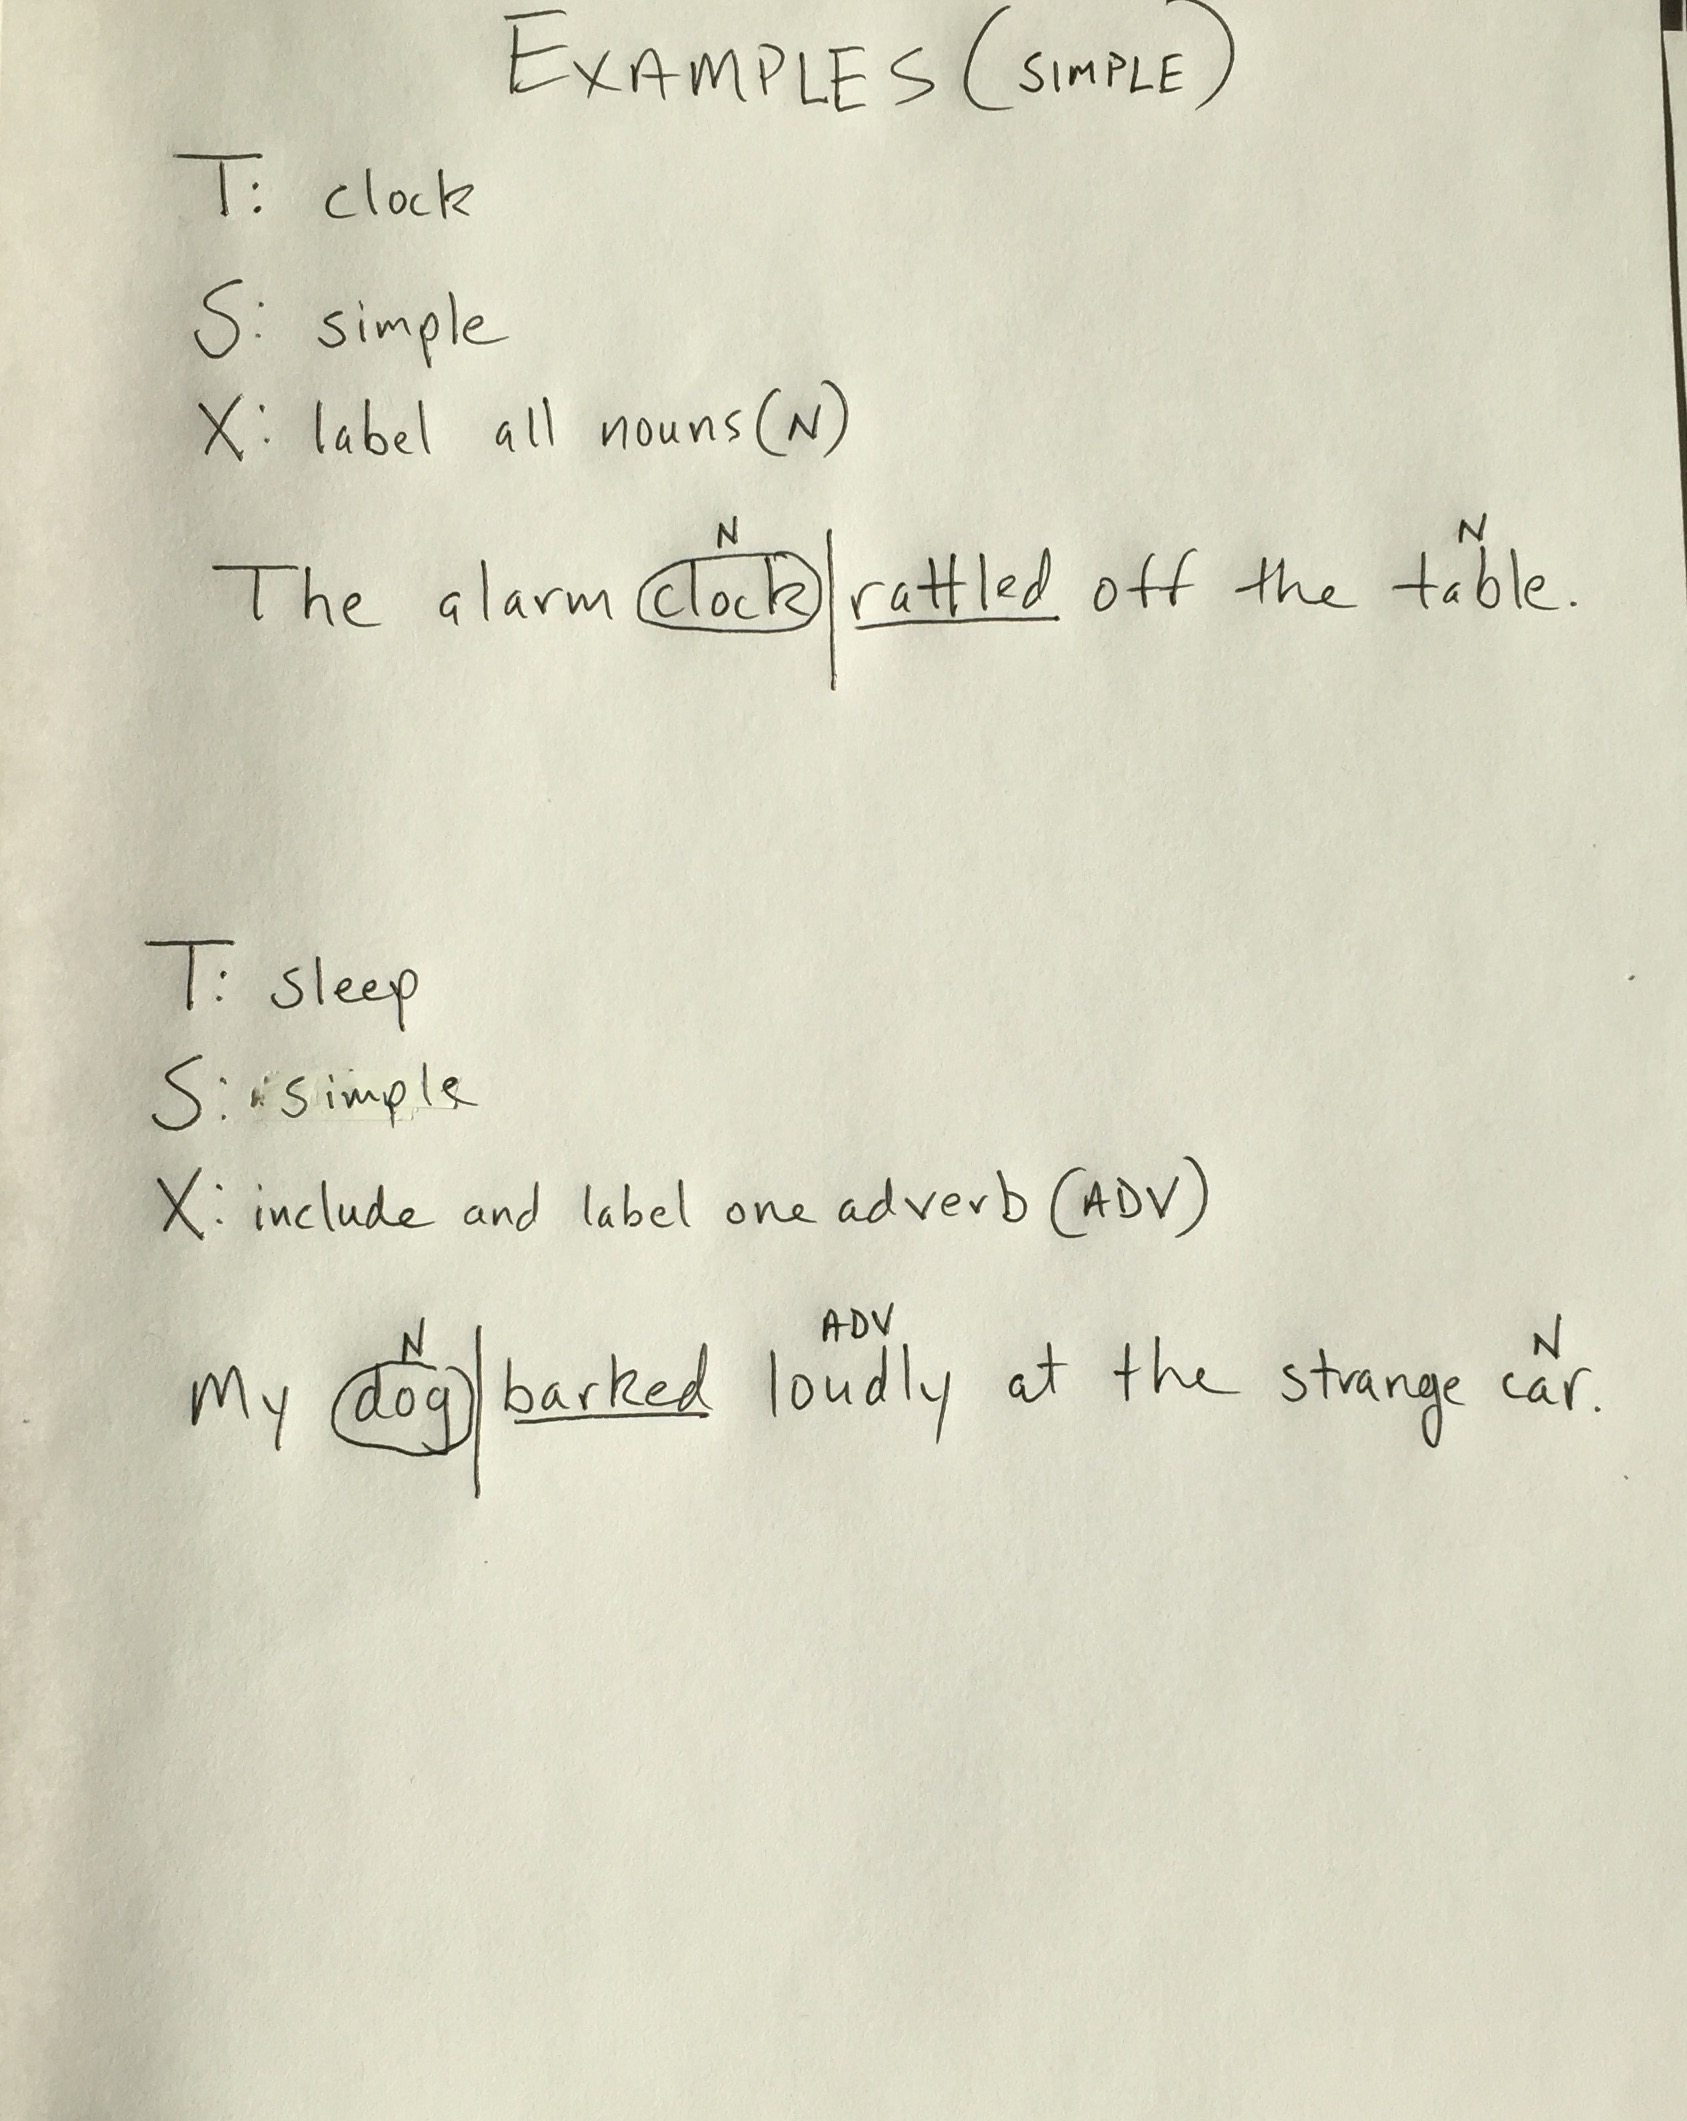 EXAMPLES (SIMPLE)
T: clock
S: simple
X: label all nouns (N)
N N
The alarm clock | rattled off the table.
T: sleep
S: simple
X: include and label one adverb (ADV)
N ADV N
My dog | barked loudly at the strange car.